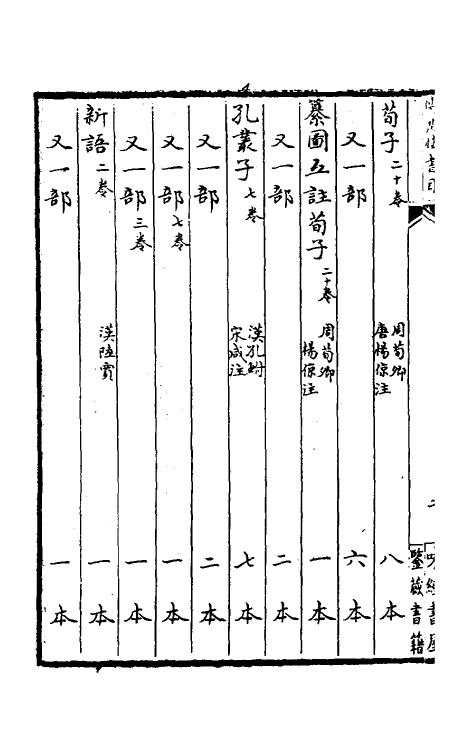 荀子二十卷 周荀卿 唐楊倞注 八本
又一部 六本
纂圖互註荀子二十卷 周荀卿 楊倞注 一本
又一部 二本
孔叢子七卷 漢孔鮒 宋咸注 七本
又一部 二本
又一部七卷 一本
又一部三卷 一本
新語二卷 漢陸賈 一本
又一部 一本
鑒藏書籍